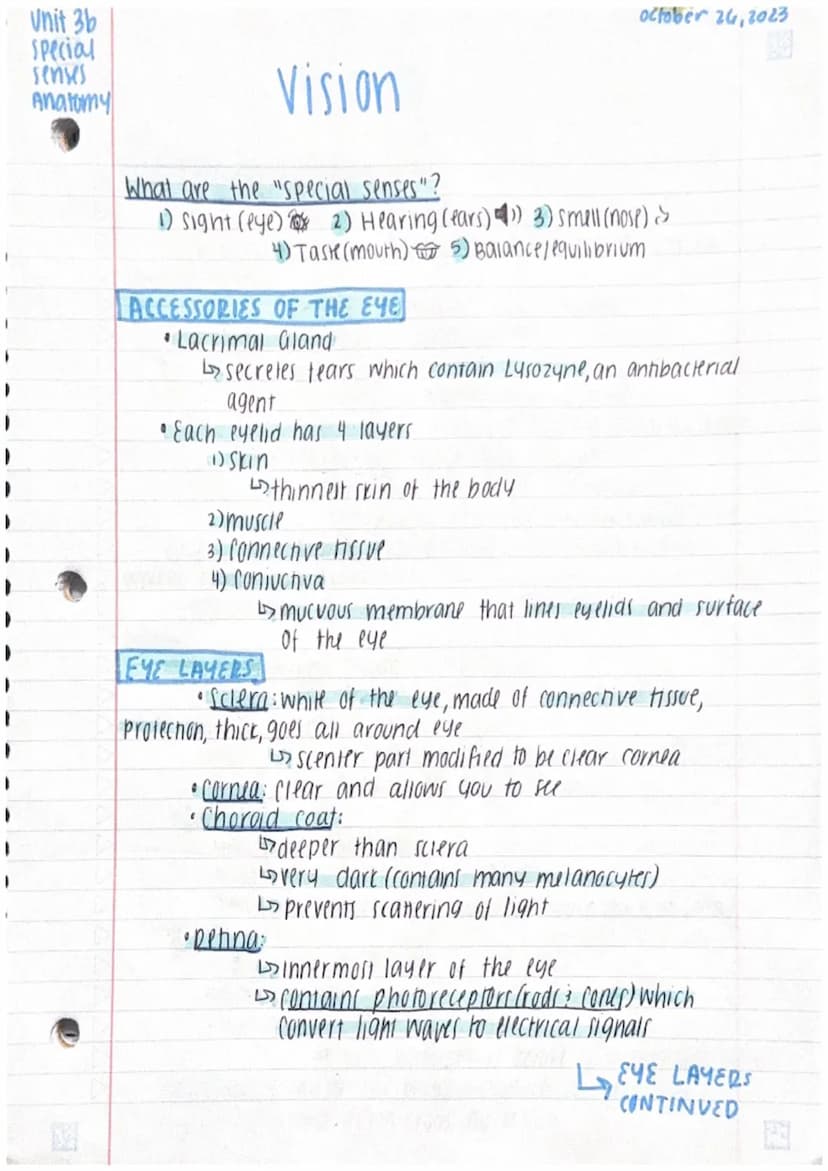 Unit 3b
special
senses
Anatomy
October 26, 2023
Vision
What are the "special senses"?
1) Sight (eye) 2) Hearing (ears) 3) Smell (nose)
4) Taste (mouth) 5) Balance/equilibrium
ACCESSORIES OF THE EYE
• Lacrimal Gland
↳ secretes tears which contain Lysozyne, an antibacterial
agent
• Each eyelid has 4 layers
1) Skin
↳ thinnest skin of the body
2) muscle
3) Connective tissue
4) Conjuctiva
↳ mucuous membrane that lines eyelids and surface
of the eye
EYE LAYERS
• Sclera: white of the eye, made of connective tissue,
protection, thick, goes all around eye
↳ scenter part modified to be clear cornea
• Cornea: clear and allows you to see
• Choroid coat:
↳ deeper than sclera
↳ very dark (contains many melanocytes)
↳ prevents scattering of light
• Retina:
↳ innermost layer of the eye
↳ contains photoreceptors (rods & cones) which
convert light waves to electrical signals
↳ EYE LAYERS
CONTINUED